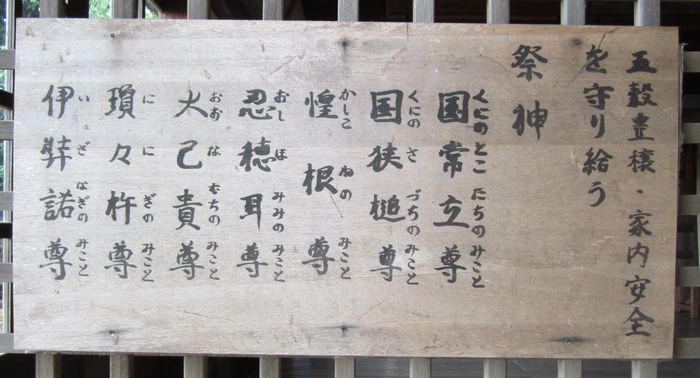 五穀豊穣・家内安全
を守り給う
祭神
国常立尊
くにのとこたちのみこと
国狭槌尊
くにのさづちのみこと
惶根尊
かしこねのみこと
忍穂耳尊
おしほみみのみこと
大己貴尊
おおなむちのみこと
瓊々杵尊
ににぎのみこと
伊弉諾尊
いざなぎのみこと